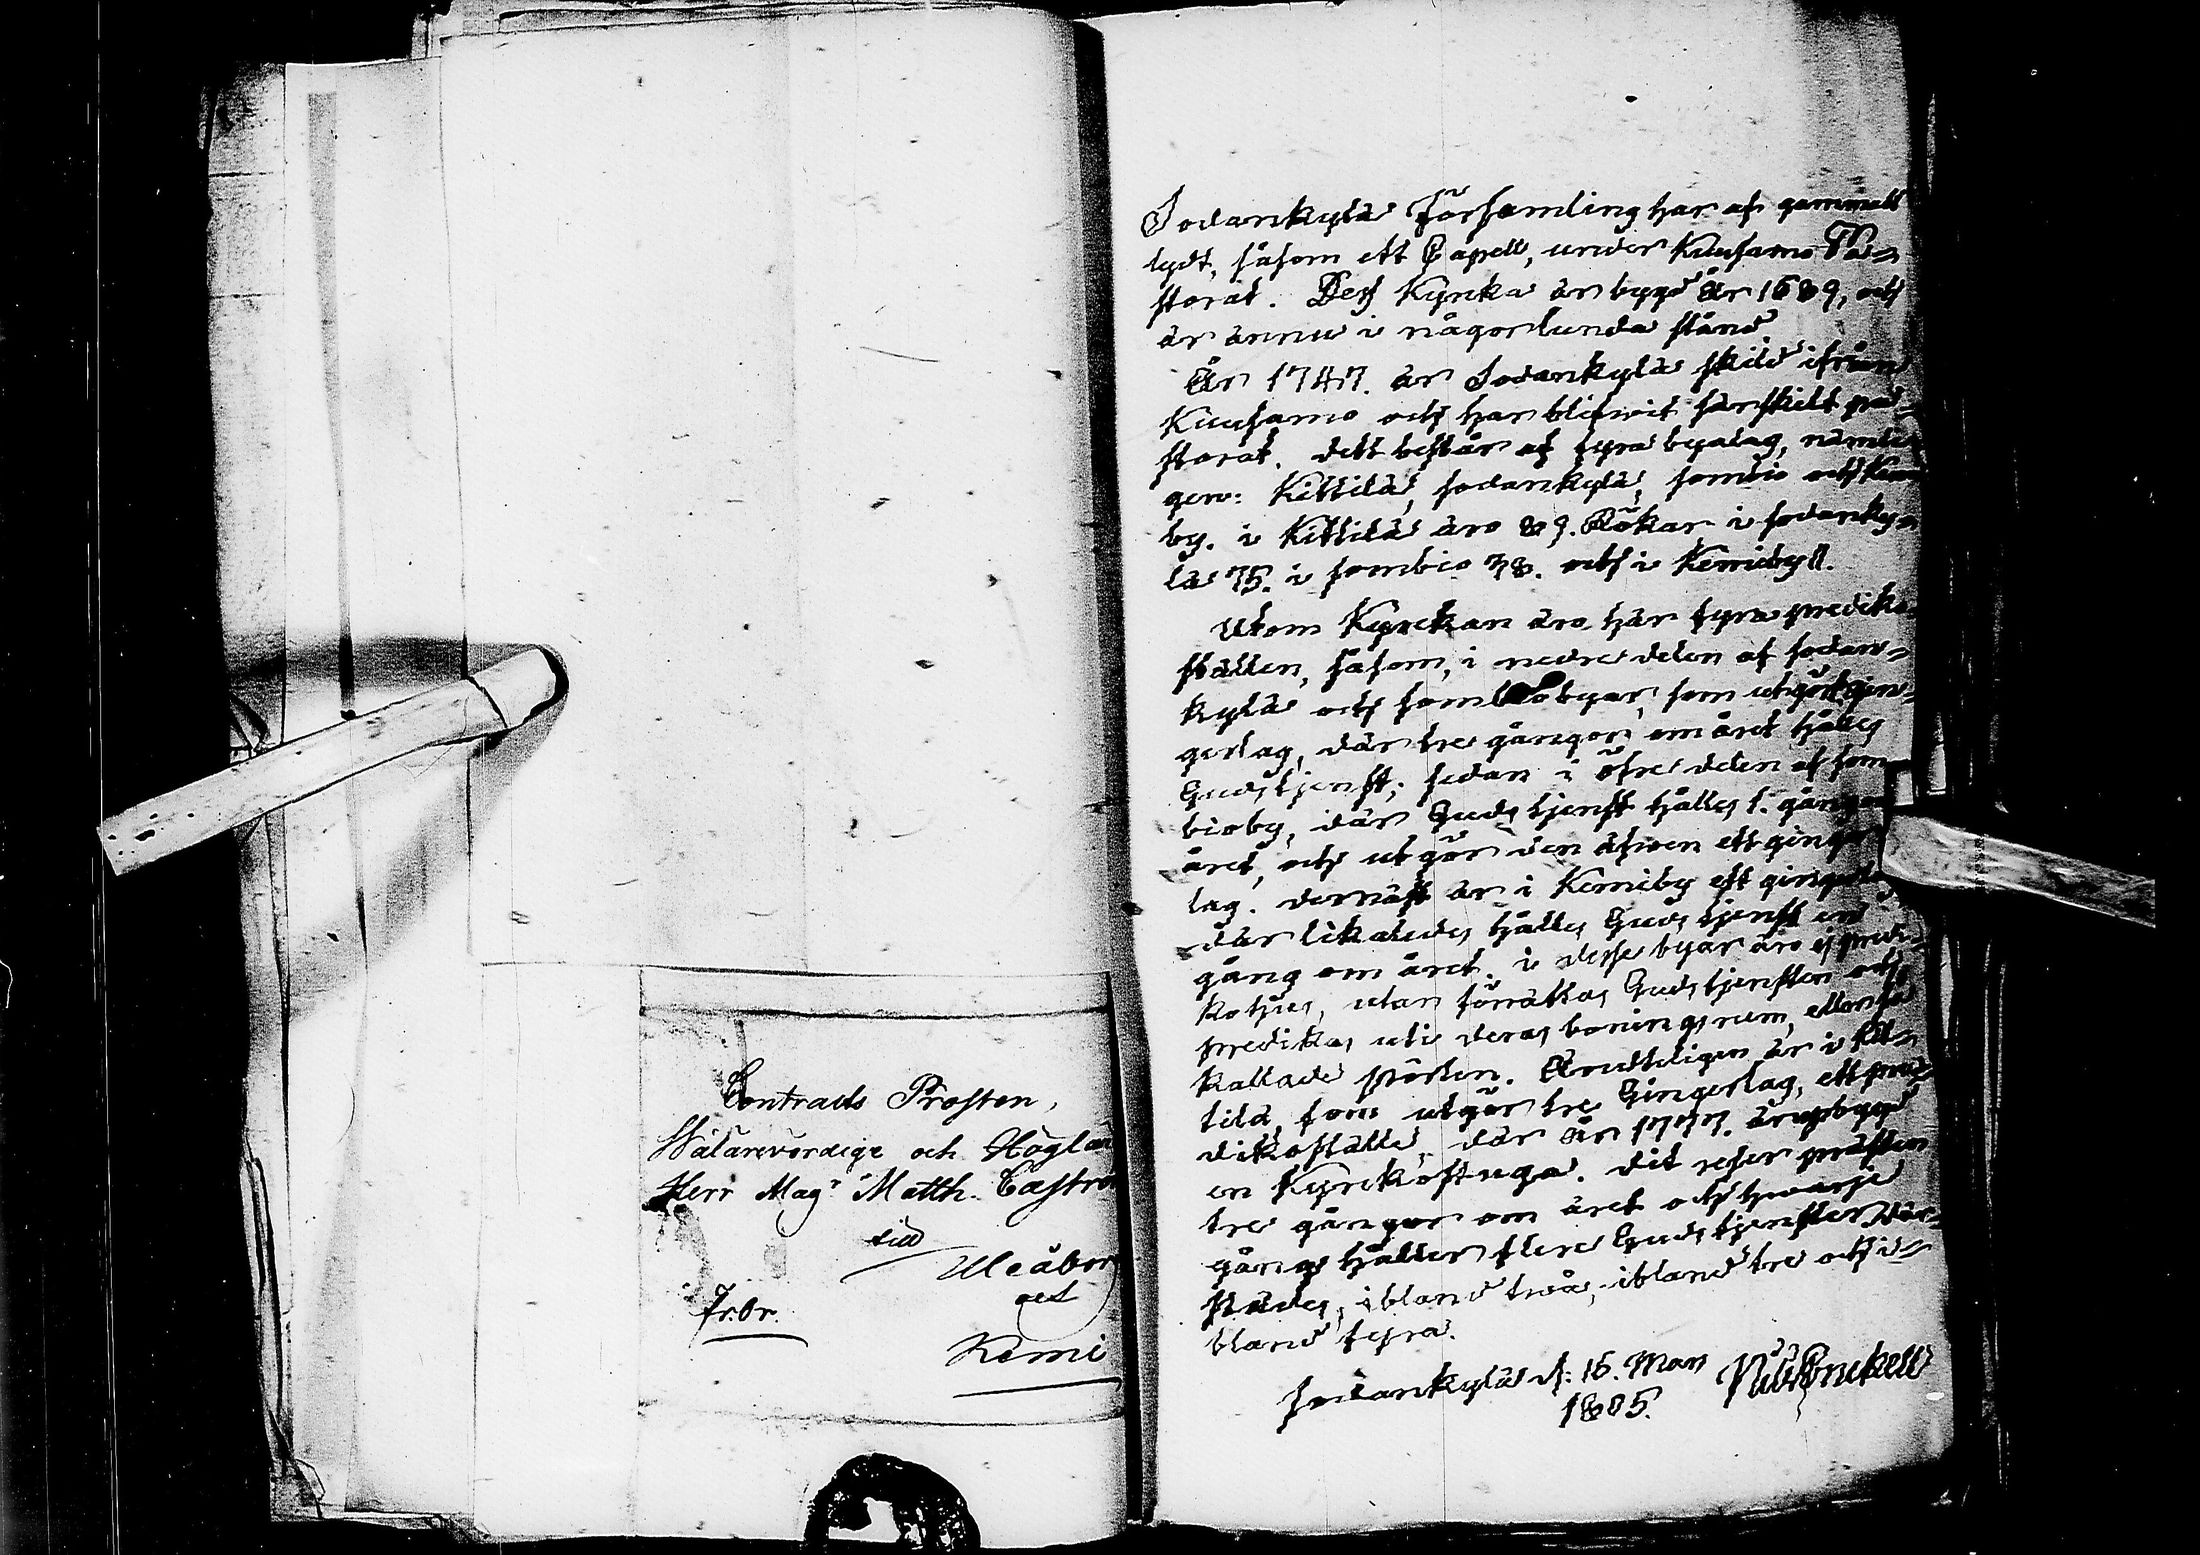 Contracts Prosten,
Wälärevördige och Höglär
Herr Magr Matth. Castrén
till
Uleåborg
Fr.br.
och
Kemi
Sodankylä Församling har af gammalt
lydt, såsom ett Capell, under Kuusamo Pa-
storat. Dess Kyrcka är bygd år 1689, och
är ännu i någorlunda stånd
År 1747. är Sodankylä skild ifrån
Kuusamo och har blifwit särskilt pa-
storat. dett består af fyra byalag, nämli
gen: Kittilä, sodankylä, sombio och Kemi
by. i Kittilä äro 89. Rökar i sodanky-
lä 75. i sombio 38. och i Kemiby 11.
Utom Kyrckan äro här fyra prediko
ställen, såsom, i nedre delen af sodan-
kylä och sombio byar, som utgör gin-
gerlag, där tre gånger om året hålles
Gudstjenst; sedan i öfre delen af som
bioby, där Gudstjenst hålles 1. gång om
året, och utgör den äfwen ett ginger
lag. dernäst är i Kemiby ett gingerlag
där likaledes hålles Gudstjenst en
gång om året. i desse byar äro ej predi-
kohus, utan förrättas Gudstjensten och
predikas uti deras boningsrum, eller så
kallade pörten. Ändteligen är i Kit-
tilä, som utgör tre Gingerlag, ett pre-
dikoställe, där år 1777. är upbygd
en Kyrckostuga. dit reser prästen
tre gånger om året och hwarje
gång håller flere Gudstjenster där-
städes, ibland twå, ibland tre och i-
bland fyra.
Sodankylä d: 16. Mars
1805.